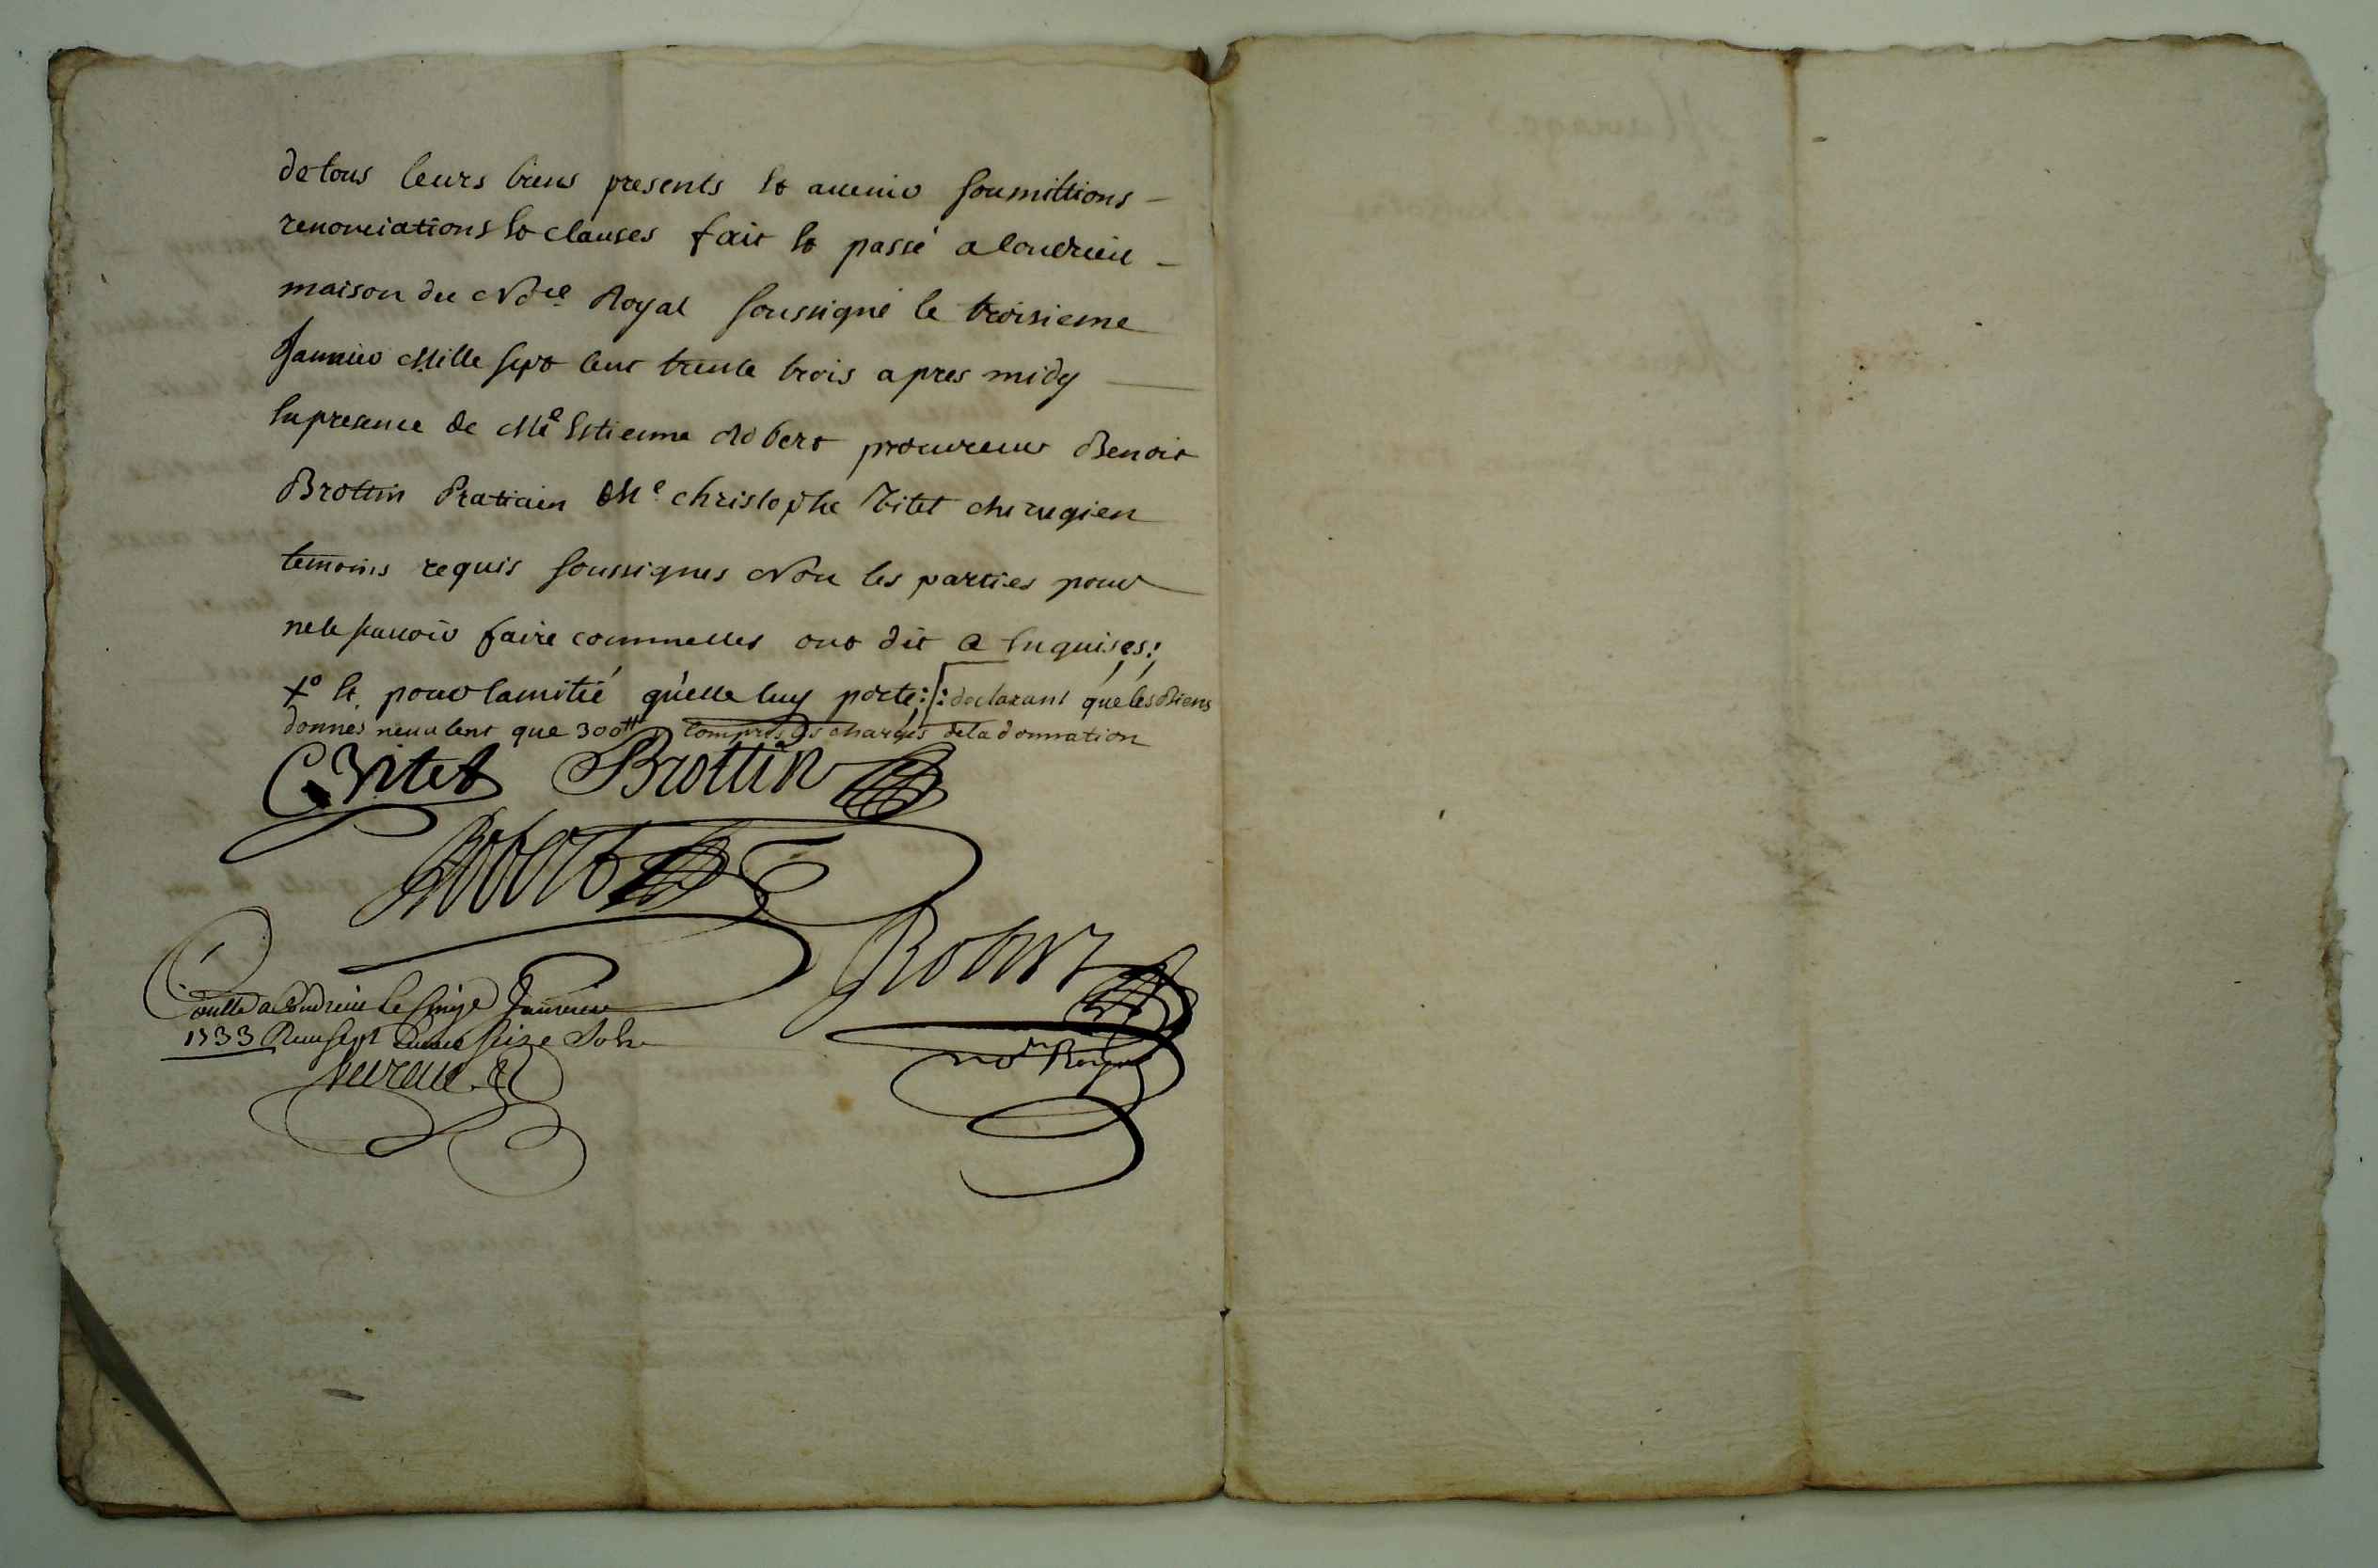 de tous leurs biens presents et avenir soumittions
renonciations et clauses fait et passé a Condrieu
maison du No.re Royal soussigné le troisieme
Janvier Mille sept cent trente trois apres midy
En presance de Me Estienne Robert procureur Benoit
Brottin Praticien Me christophe Vitet chirugien
temoins requis soussignes Non les parties pour
ne le savoir faire comm'elles ont dit a Enquises:
+o Et pour lamitié qu'elle luy porte: declarant que les Biens
donnes nevalent que 300tt compris les charges dela donnation
C. Vitet Brottin
Robert
Robert
no.re Royal
Con.lle a Condrieu le Janvier
1733 Receu sept seize sols